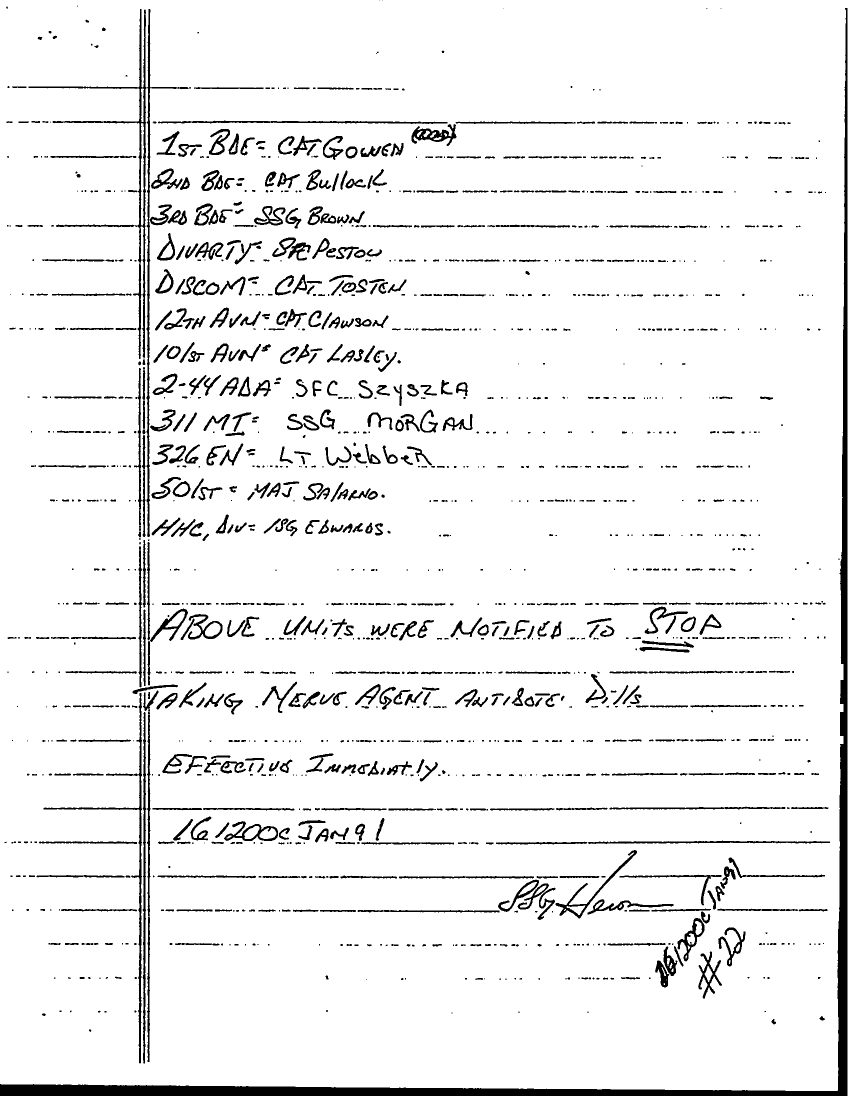 1ST BDE= CPT GOWEN
2ND BDE= CPT Bullock
3RD BDE= SSG BROWN
DIVARTY= SPC PESTOW
DISCOM= CPT TOSTEN
12TH AVN= CPT CLAWSON
101ST AVN= CPT LASLEY.
2-44 ADA= SFC SZYSZKA
311 MI= SSG MORGAN
326 EN= LT WebbeR
501ST = MAJ SALARNO.
HHC, DIV= 1SG EDWARDS.
ABOVE UNITS WERE NOTIFIED TO STOP
TAKING NERVE AGENT ANTIDOTE. Pills
EFFECTIVE IMMEDIATLY.
161200C JAN 91
SSG Heron
161200C JAN 91
#22